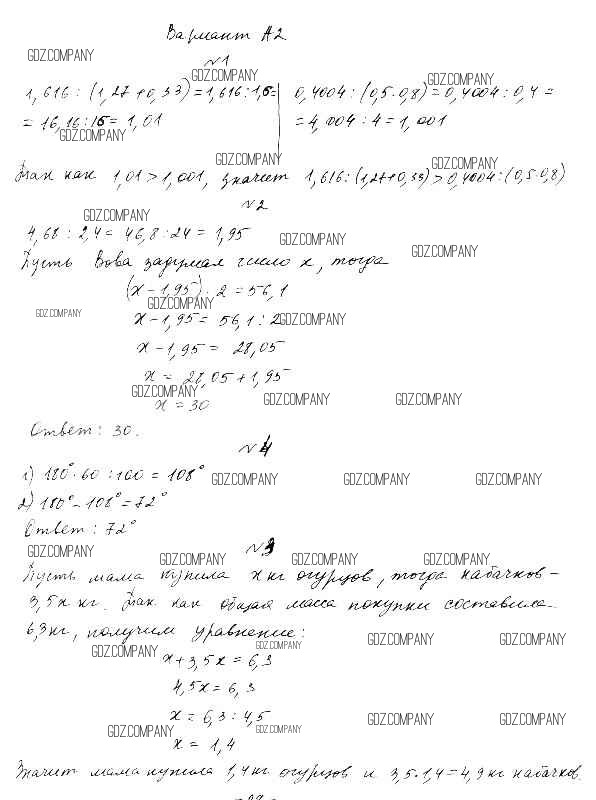 Вариант А2
GDZ.COMPANY
№1
GDZ.COMPANY GDZ.COMPANY
1,616 : (1,27+0,33) = 1,616 : 1,6 = 0,4004 : (0,5·0,8) = 0,4004 : 0,4 =
= 16,16 : 16 = 1,01 = 4,004 : 4 = 1,001
GDZ.COMPANY
GDZ.COMPANY GDZ.COMPANY
Так как 1,01 > 1,001, значит 1,616 : (1,27+0,33) > 0,4004 : (0,5·0,8)
№2
GDZ.COMPANY
4,68 : 2,4 = 46,8 : 24 = 1,95
GDZ.COMPANY GDZ.COMPANY
Пусть Вова задумал число x, тогда
(x – 1,95) · 2 = 56,1
GDZ.COMPANY
GDZ.COMPANY
x – 1,95 = 56,1 : 2 GDZ.COMPANY
x – 1,95 = 28,05
x = 28,05 + 1,95
GDZ.COMPANY GDZ.COMPANY GDZ.COMPANY
x = 30
Ответ: 30.
№4
1) 180° · 60 : 100 = 108°
GDZ.COMPANY GDZ.COMPANY GDZ.COMPANY
2) 180° – 108° = 72°
Ответ: 72°
№3
GDZ.COMPANY GDZ.COMPANY GDZ.COMPANY GDZ.COMPANY
Пусть мама купила x кг огурцов, тогда кабачков –
3,5x кг. Так как общая масса покупки составила
6,3 кг, получим уравнение:
GDZ.COMPANY GDZ.COMPANY GDZ.COMPANY GDZ.COMPANY
x + 3,5x = 6,3
4,5x = 6,3
x = 6,3 : 4,5
GDZ.COMPANY GDZ.COMPANY GDZ.COMPANY GDZ.COMPANY
x = 1,4
Значит мама купила 1,4 кг огурцов и 3,5·1,4 = 4,9 кг кабачков.